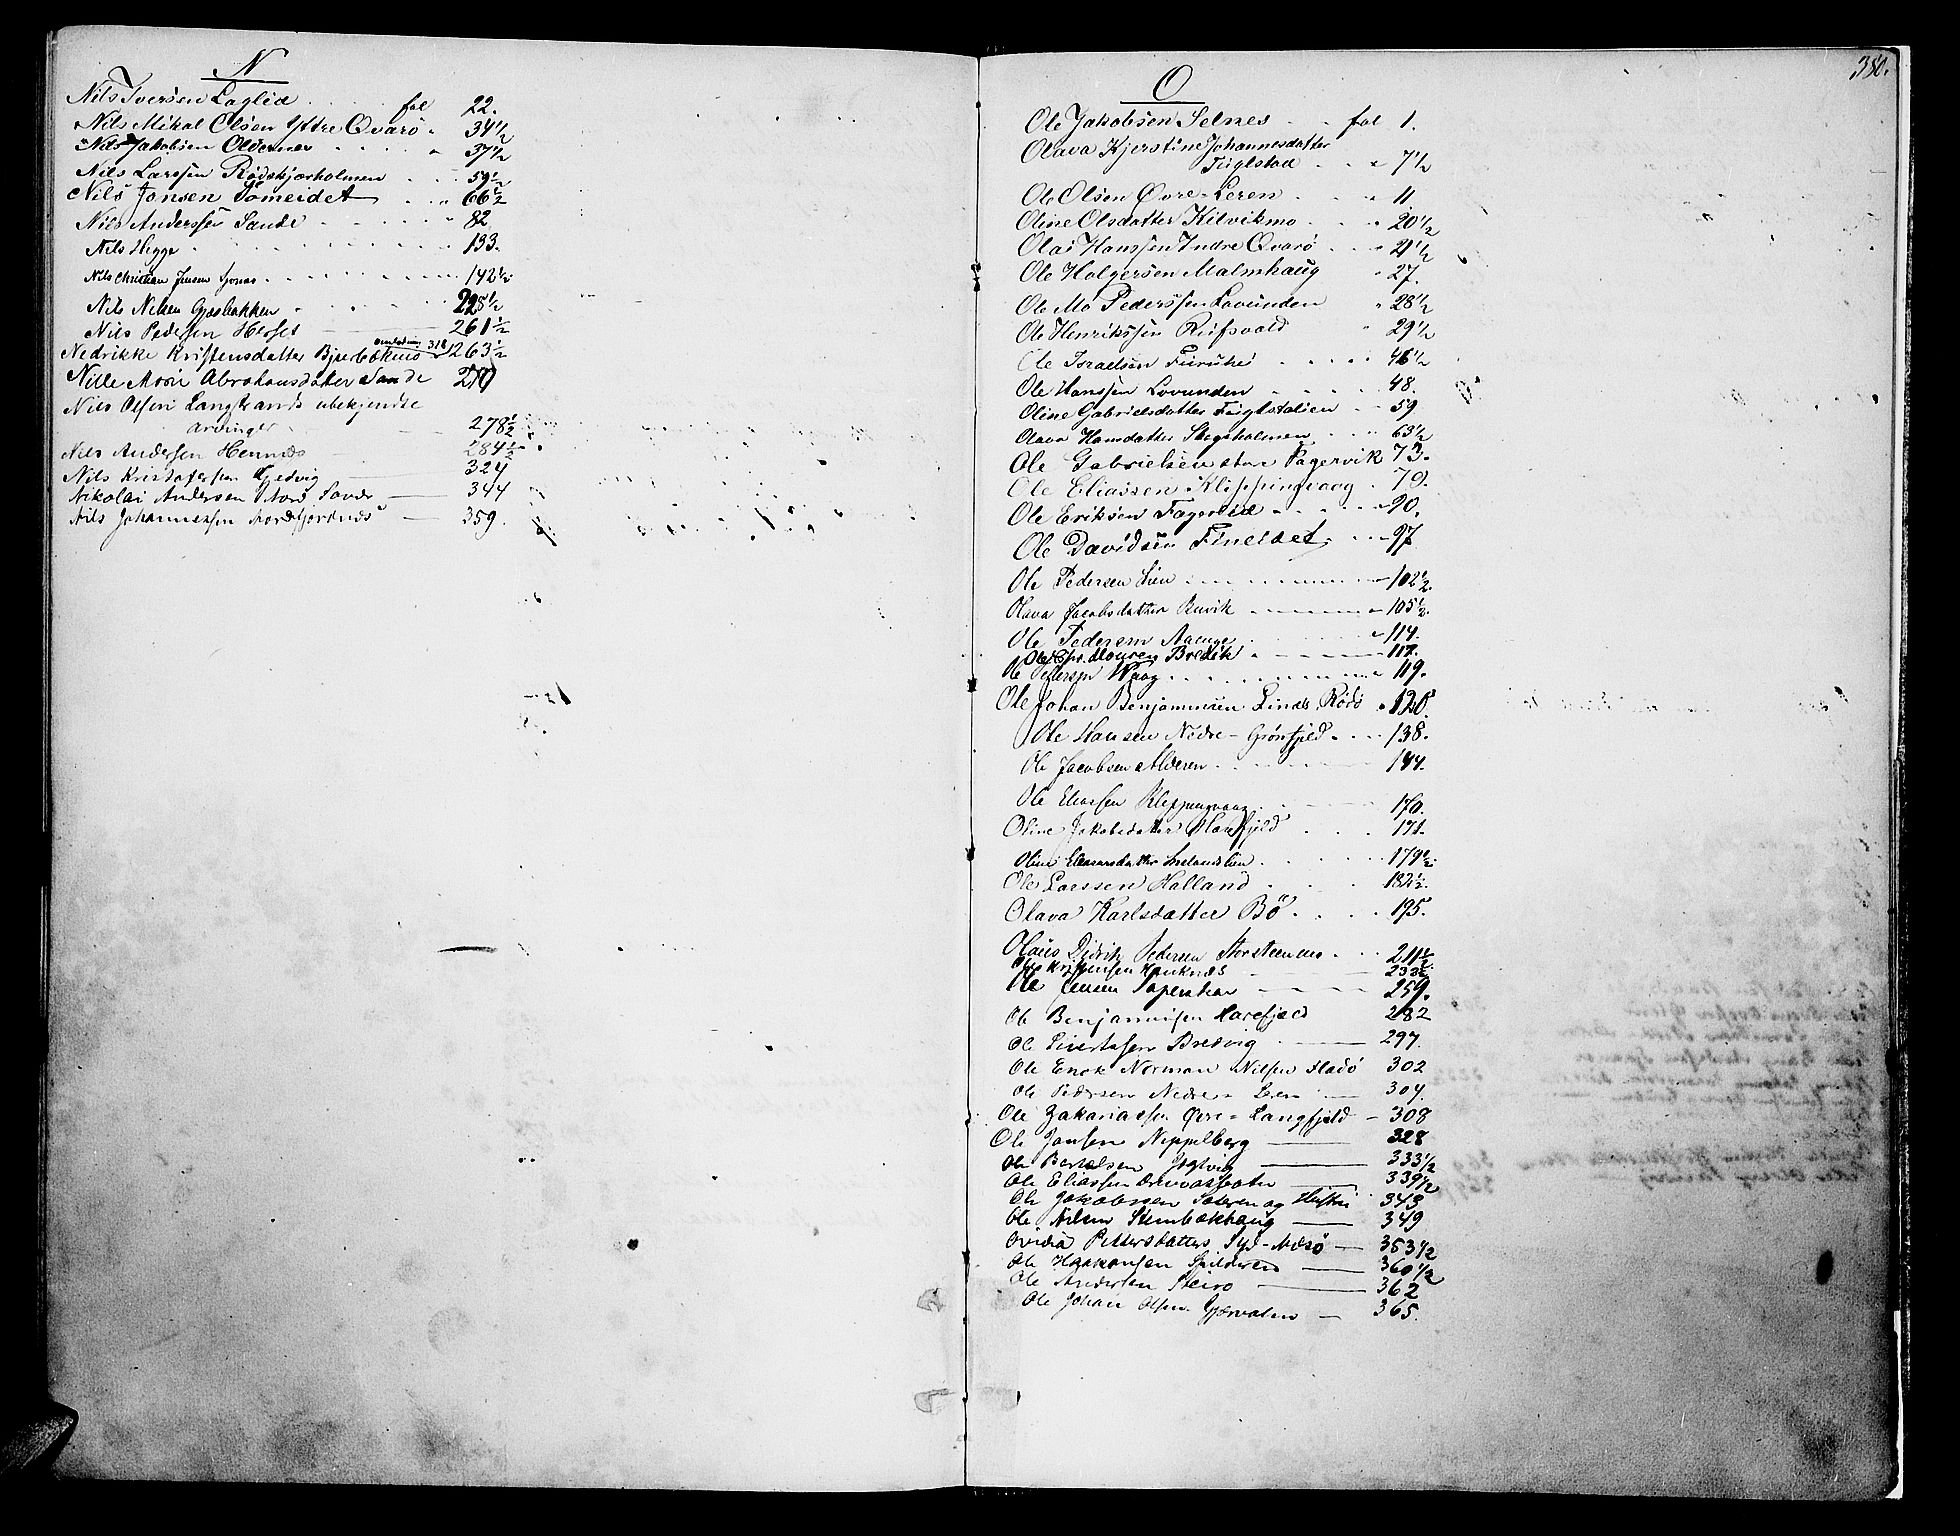 N
Nils Iversen Laglid fol 22.
Nils Mikal Olsen Yttre Qvarø " 34 1/2
Nils Jakobsen Oldernes " 37 1/2
Nils Larssen Rødskjærholmen 59 1/2
Nils Jonsen Sømeidet " 66 1/2
Nils Anderssen Sande " 82
Nils Hegge 133.
Nils Christian Jensen 142 1/2
Nils Nilsen Gjæsbakken 228 1/2
Nils Pedersen Herset 261 1/2
Nedrikke Kristensdatter Bjerbæknes 318 263 1/2
Nille Marie Abrahamsdatter Sande 270
Nils Olsen Langstrands ubekjendte
arvinger 278 1/2
Nils Andersen Hemnæs 284 1/2
Nils Kristofersen 324
Nikolai Andersen Nord Solvær 344
Nils Johannessen Nordfjordnæs 359.
380.
O
Ole Jakobsen Selnes fol 1.
Olava Kjerstine Johannesdatter
Fuglstad " 7 1/2
Ole Olsen Øvre-Leren " 11
Oline Olsdatter Kilvikmo " 20 1/2
Olai Hanssen Indre Qvarø " 21 1/2
Ole Holgersen Malmhaug " 27.
Ole Mo Pederssen Lovunden " 28 1/2
Ole Henrikssen Reifsvald " 29 1/2
Ole Israelsen Furuhei 46 1/2
Ole Hanssen Lovunden 48.
Oline Gabrielsdatter Fuglstadlien 59
Olava Hansdatter Stegsholmen " 63 1/2
Ole Gabrielsen store Fagervik 73.
Ole Eliassen Klippingvaag 79.
Ole Eriksen Fagerlid 90.
Ole Davidsen Fineidet 97
Ole Pedersen Lien 102 1/2
Olava Jacobsdatter 105 1/2
Ole Pedersen 114.
Ole Bredek 117.
Ole Pedersen Waag 119.
Ole Johan Benjaminsen Rødø 120.
Ole Hansen Nedre-Grønfjeld 138.
Ole Jacobsen Alderen 144.
Ole Eliassen Klippingvaag 170.
Oline Jakobsdatter Harefjeld 171.
Oline Eleasarsdatter 179 1/2
Ole Larssen Halland 182 1/2
Olava Karlsdatter Bø 195.
Olaus Didrik Pedersen Storsteennes 211 1/2
Kristensen 233 1/2
Ole Jensen 259.
Ole Benjaminsen Harefjeld 282
Ole Sivertsen Bredvig 297.
Ole Enok Norman Nilsen Fladø 302
Ole Pedersen Nedre-Leren 304.
Ole Zakariassen Øvre-Langfjeld 308
Ole Jansen Nippelberg 328
Ole Bertelsen 333 1/2
Ole Eliassen 339 1/2
Ole Jakobsen og Hustru 343
Ole Nilsen Stenbækhaug 349
Ovidia Pettersdatter Syd-Næsø 353 1/2
Ole Haakonsen Spilderen 360 1/2
Ole Andersen Steiro 362
Ole Johan Olsen Gjervalen 365.